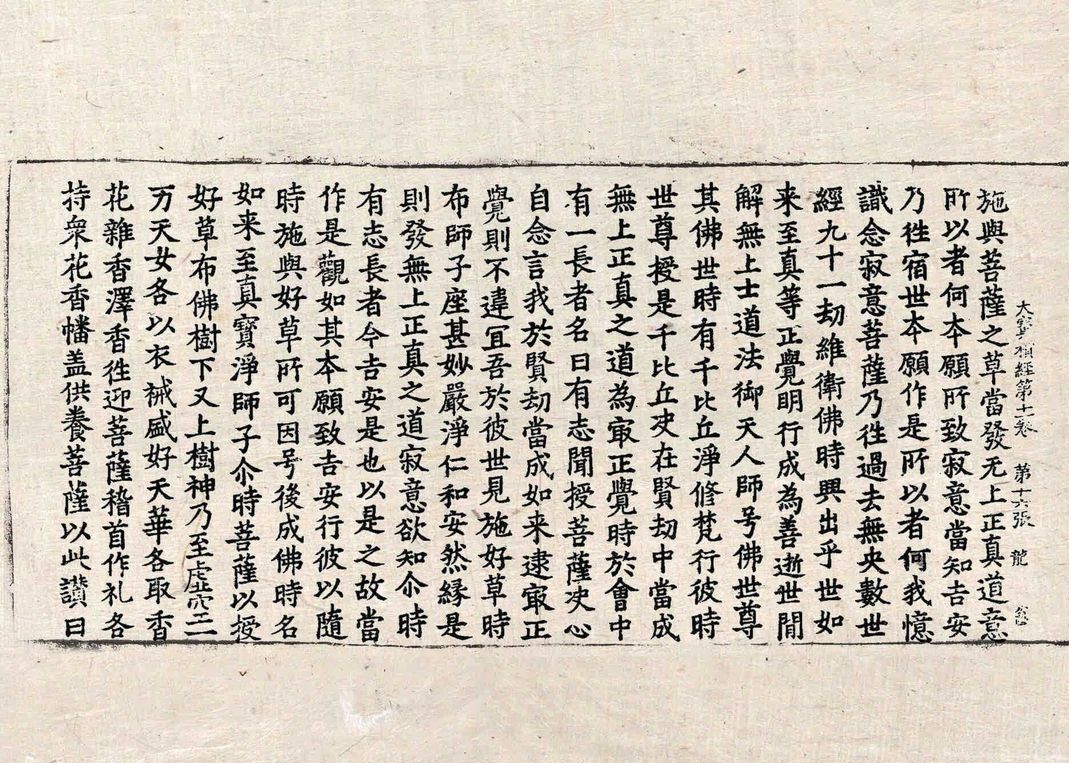 大寶積經第十一卷 第十六張 龍
施與菩薩之草當發无上正真道意
所以者何本願所致寂意當知吉安
乃往宿世本願作是所以者何我憶
識念寂意菩薩乃往過去無央數世
經九十一劫維衛佛時興出乎世如
来至真等正覺明行成為善逝世間
解無上士道法御天人師号佛世尊
其佛世時有千比丘淨修梵行彼時
世尊授是千比丘决在賢劫中當成
無上正真之道為㝡正覺時於會中
有一長者名曰有志聞授菩薩决心
自念言我於賢劫當成如来逮㝡正
覺則不違冝吾於彼世見施好草時
布師子座甚妙嚴淨仁和安然緣是
則發無上正真之道寂意欲知尒時
有志長者今吉安是也以是之故當
作是觀如其本願致吉安行彼以隨
時施與好草所可因号後成佛時名
如来至真寶淨師子尒時菩薩以授
好草布佛樹下又上樹神乃至虛空二
万天女各以衣裓盛好天華各取香
花雜香澤香往迎菩薩稽首作礼各
持衆花香幡盖供養菩薩以此讃曰